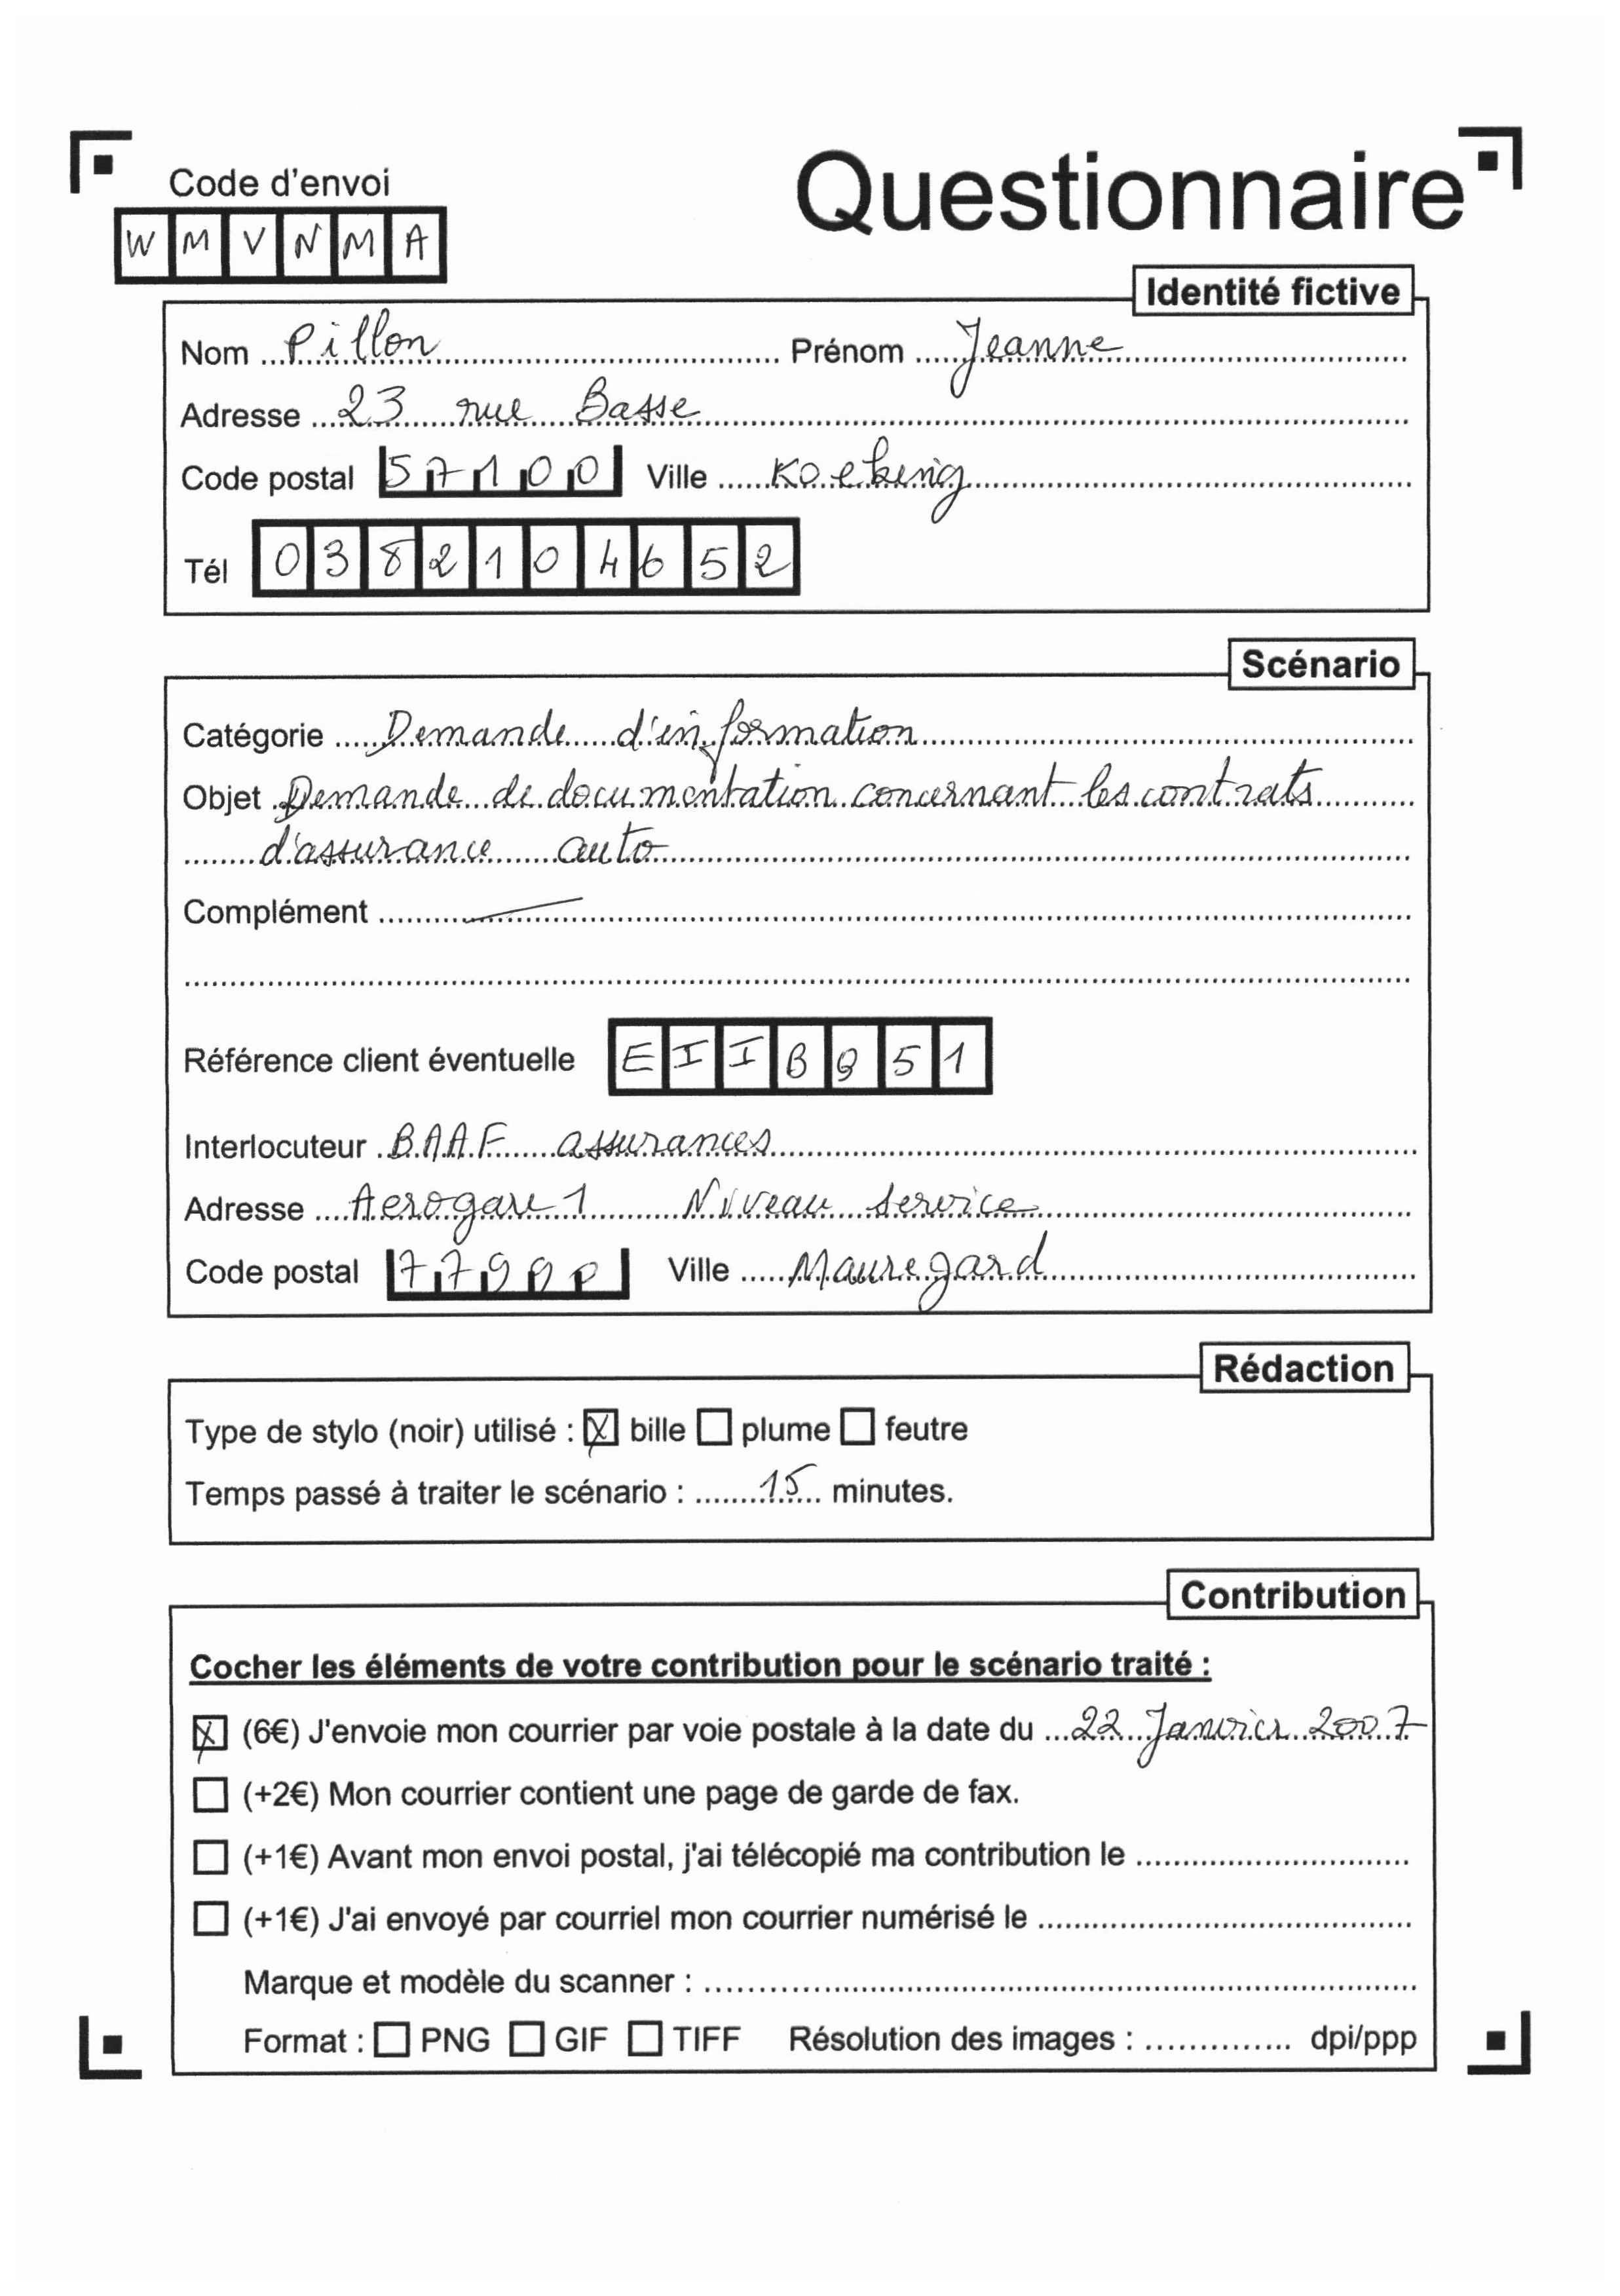 Code d'envoi
Questionnaire
WMVNMA
Identité fictive
Nom Pillon Prénom Jeanne
Adresse 23 rue Basse
Code postal 57100 Ville Koeking
Tél 0382104652
Scénario
Catégorie Demande d'information
Objet Demande de documentation concernant les contrats
d'assurance auto
Complément
Référence client éventuelle EIIB951
Interlocuteur BAAF assurances
Adresse Aerogare 1 Niveau service
Code postal 77990 Ville Mauregard
Rédaction
Type de stylo (noir) utilisé : bille plume feutre
Temps passé à traiter le scénario : 15 minutes.
Contribution
Cocher les éléments de votre contribution pour le scénario traité :
(6€) J'envoie mon courrier par voie postale à la date du 22 Janvier 2007
(+2€) Mon courrier contient une page de garde de fax.
(+1€) Avant mon envoi postal, j'ai télécopié ma contribution le
(+1€) J'ai envoyé par courriel mon courrier numérisé le
Marque et modèle du scanner :
Format : PNG GIF TIFF Résolution des images : dpi/ppp